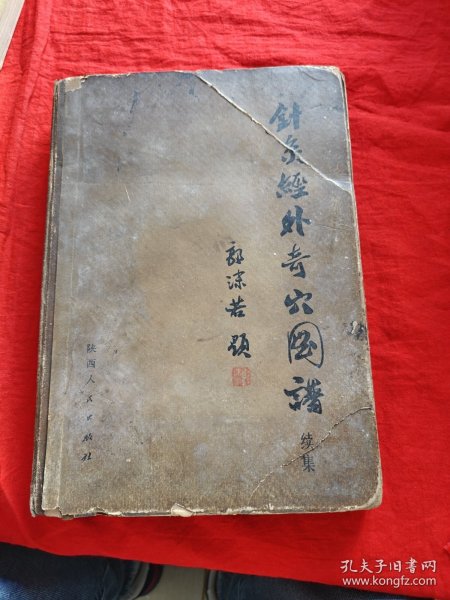 針灸經外奇穴图譜
续集
郭沫若题
陕西人民出版社
孔夫子旧书网
www.kongfz.com